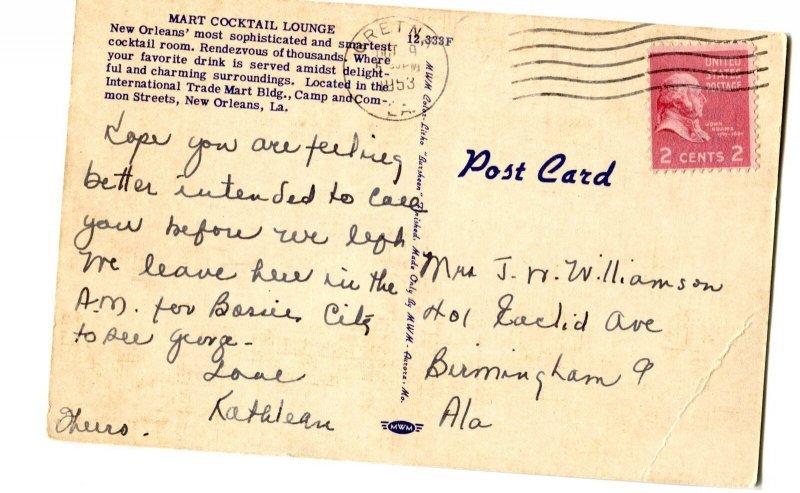 MART COCKTAIL LOUNGE
New Orleans' most sophisticated and smartest
cocktail room. Rendezvous of thousands. Where
your favorite drink is served amidst delight-
ful and charming surroundings. Located in the
International Trade Mart Bldg., Camp and Com-
mon Streets, New Orleans, La.
12,333F
GRETN
OCT 9
PM
1953
LA.
UNITED
STATES
POSTAGE
JOHN
ADAMS
2 CENTS 2
MWM Color-Litho "Dursheen" Finished. Made Only By MWM - Aurora, Mo.
Post Card
Hope you are feeling
better intended to call
you before we left
We leave here in the
A.M. for Bossier City
to see George -
Love
Kathleen
Thurs.
Mrs J. W. Williamson
401 Euclid Ave
Birmingham 9
Ala
MWM